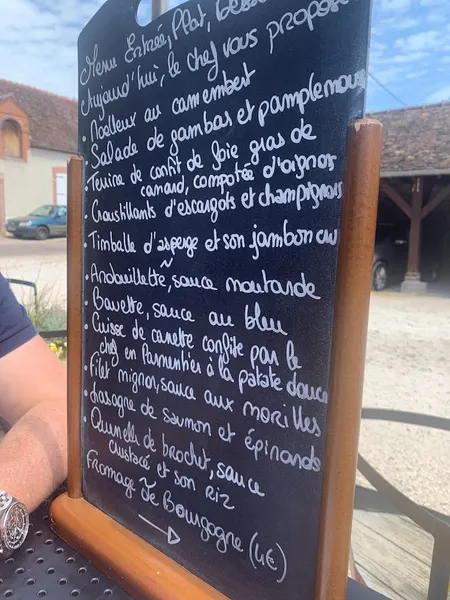 Menu Entrée, Plat, Dessert
Aujourd'hui, le chef vous propose
• Moelleux au camembert
• Salade de gambas et pamplemousse
• Terrine de confit de foie gras de
canard, compotée d'oignons
• Croustillants d'escargots et champignons
• Timballe d'asperge et son jambon cru
~
• Andouillette, sauce moutarde
• Bavette, sauce au bleu
• Cuisse de canette confite par le
chef en Parmentier à la patate douce
• Filet mignon, sauce aux morilles
• Lasagne de saumon et épinards
• Quenelle de brochet, sauce
crustacé et son riz
~
Fromage de Bourgogne (4€)
→